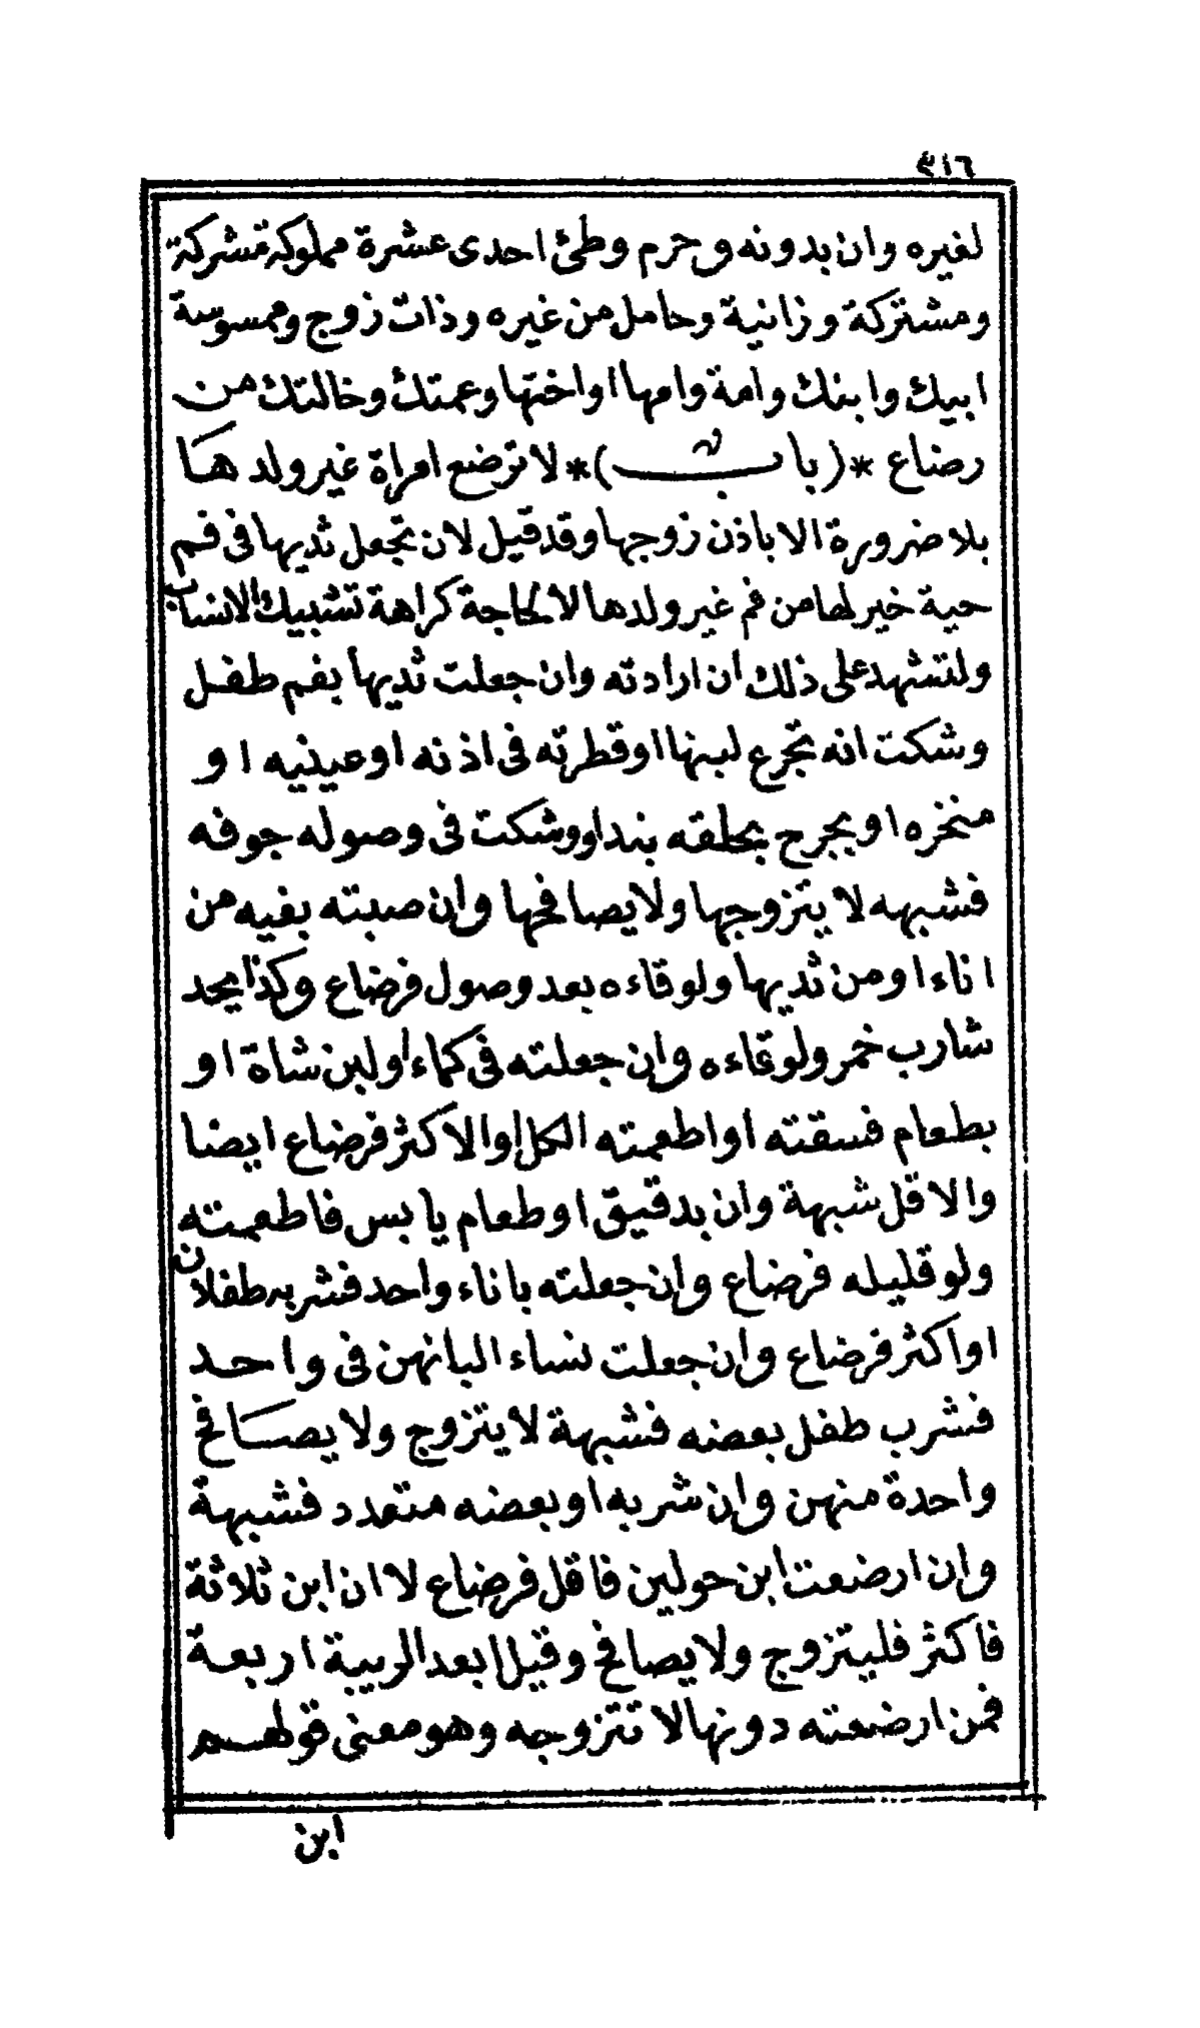 ٣١٦
لغيره وان بدونه وحرم وطئ احدى عشرة مملوكة مشركة
ومشتركة وزانية وحامل من غيره وذات زوج وممسوسة
ابيك وابنك وامة وامها او اختها وعمتك وخالتك من
رضاع *(باب)* لا ترضع امراة غير ولدها
بلا ضرورة الا باذن زوجها وقد قيل لان تجعل ثديها فى فم
حية خير لها من فم غير ولدها الا لحاجة كراهة تشبيك الانساب
ولتشهد على ذلك ان ارادته وان جعلت ثديها بفم طفل
وشكت انه تجرع لبنها او قطرته فى اذنه او عينيه او
منخره او بجرح بحلقه بندا ووشكت فى وصوله جوفه
فشبهه لا يتزوجها ولا يصافحها وان صبته بفيه من
اناء او من ثديها ولو قاءه بعد وصول فرضاع وكذا يحد
شارب خمر ولو قاءه وان جعلته فى كماء او لبن شاة او
بطعام فسقته او اطعمته الكل او الاكثر فرضاع ايضا
والاقل شبهة وان بدقيق او طعام يابس فاطعمته
ولو قليله فرضاع وان جعلته باناء واحد فشربه طفلان
او اكثر فرضاع وان جعلت نساء البانهن فى واحد
فشرب طفل بعضه فشبهة لا يتزوج ولا يصافح
واحدة منهن وان شربه او بعضه متعدد فشبهة
وان ارضعت ابن حولين فاقل فرضاع لا ان ابن ثلاثة
فاكثر فليتزوج ولا يصافح وقيل ابعد الريبة اربعة
فمن ارضعته دونها لا تتزوجه وهو معنى قولهم
ابن